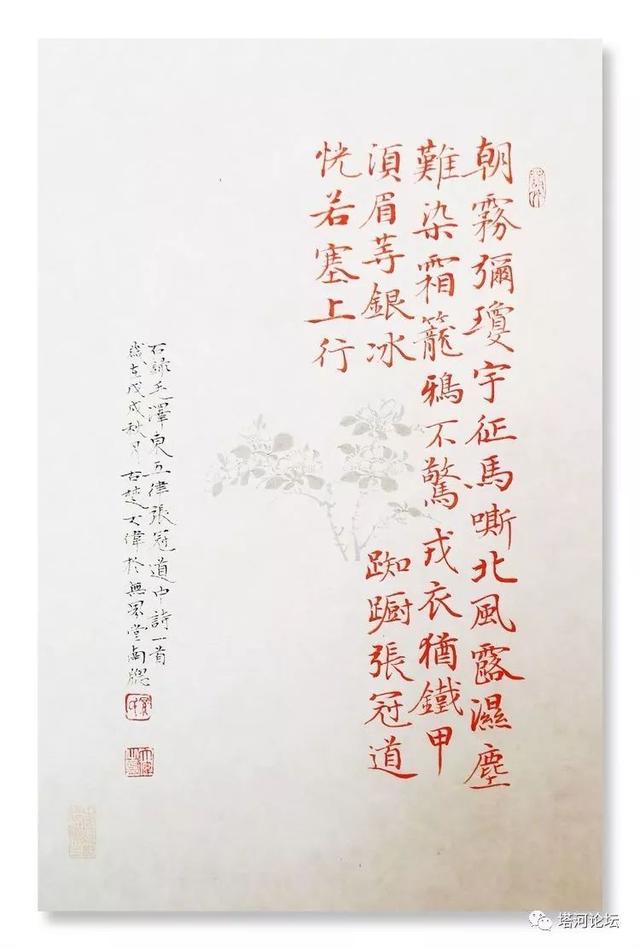 朝霧彌瓊宇征馬嘶北風露濕塵
難染霜籠鴉不驚戎衣猶鐵甲
湏眉䓁銀冰 踟蹰張冠道
恍若塞上行
右録毛澤東五律張冠道中詩一首
歲在戊戌秋月古楚大偉於無界堂南牕
塔河论坛